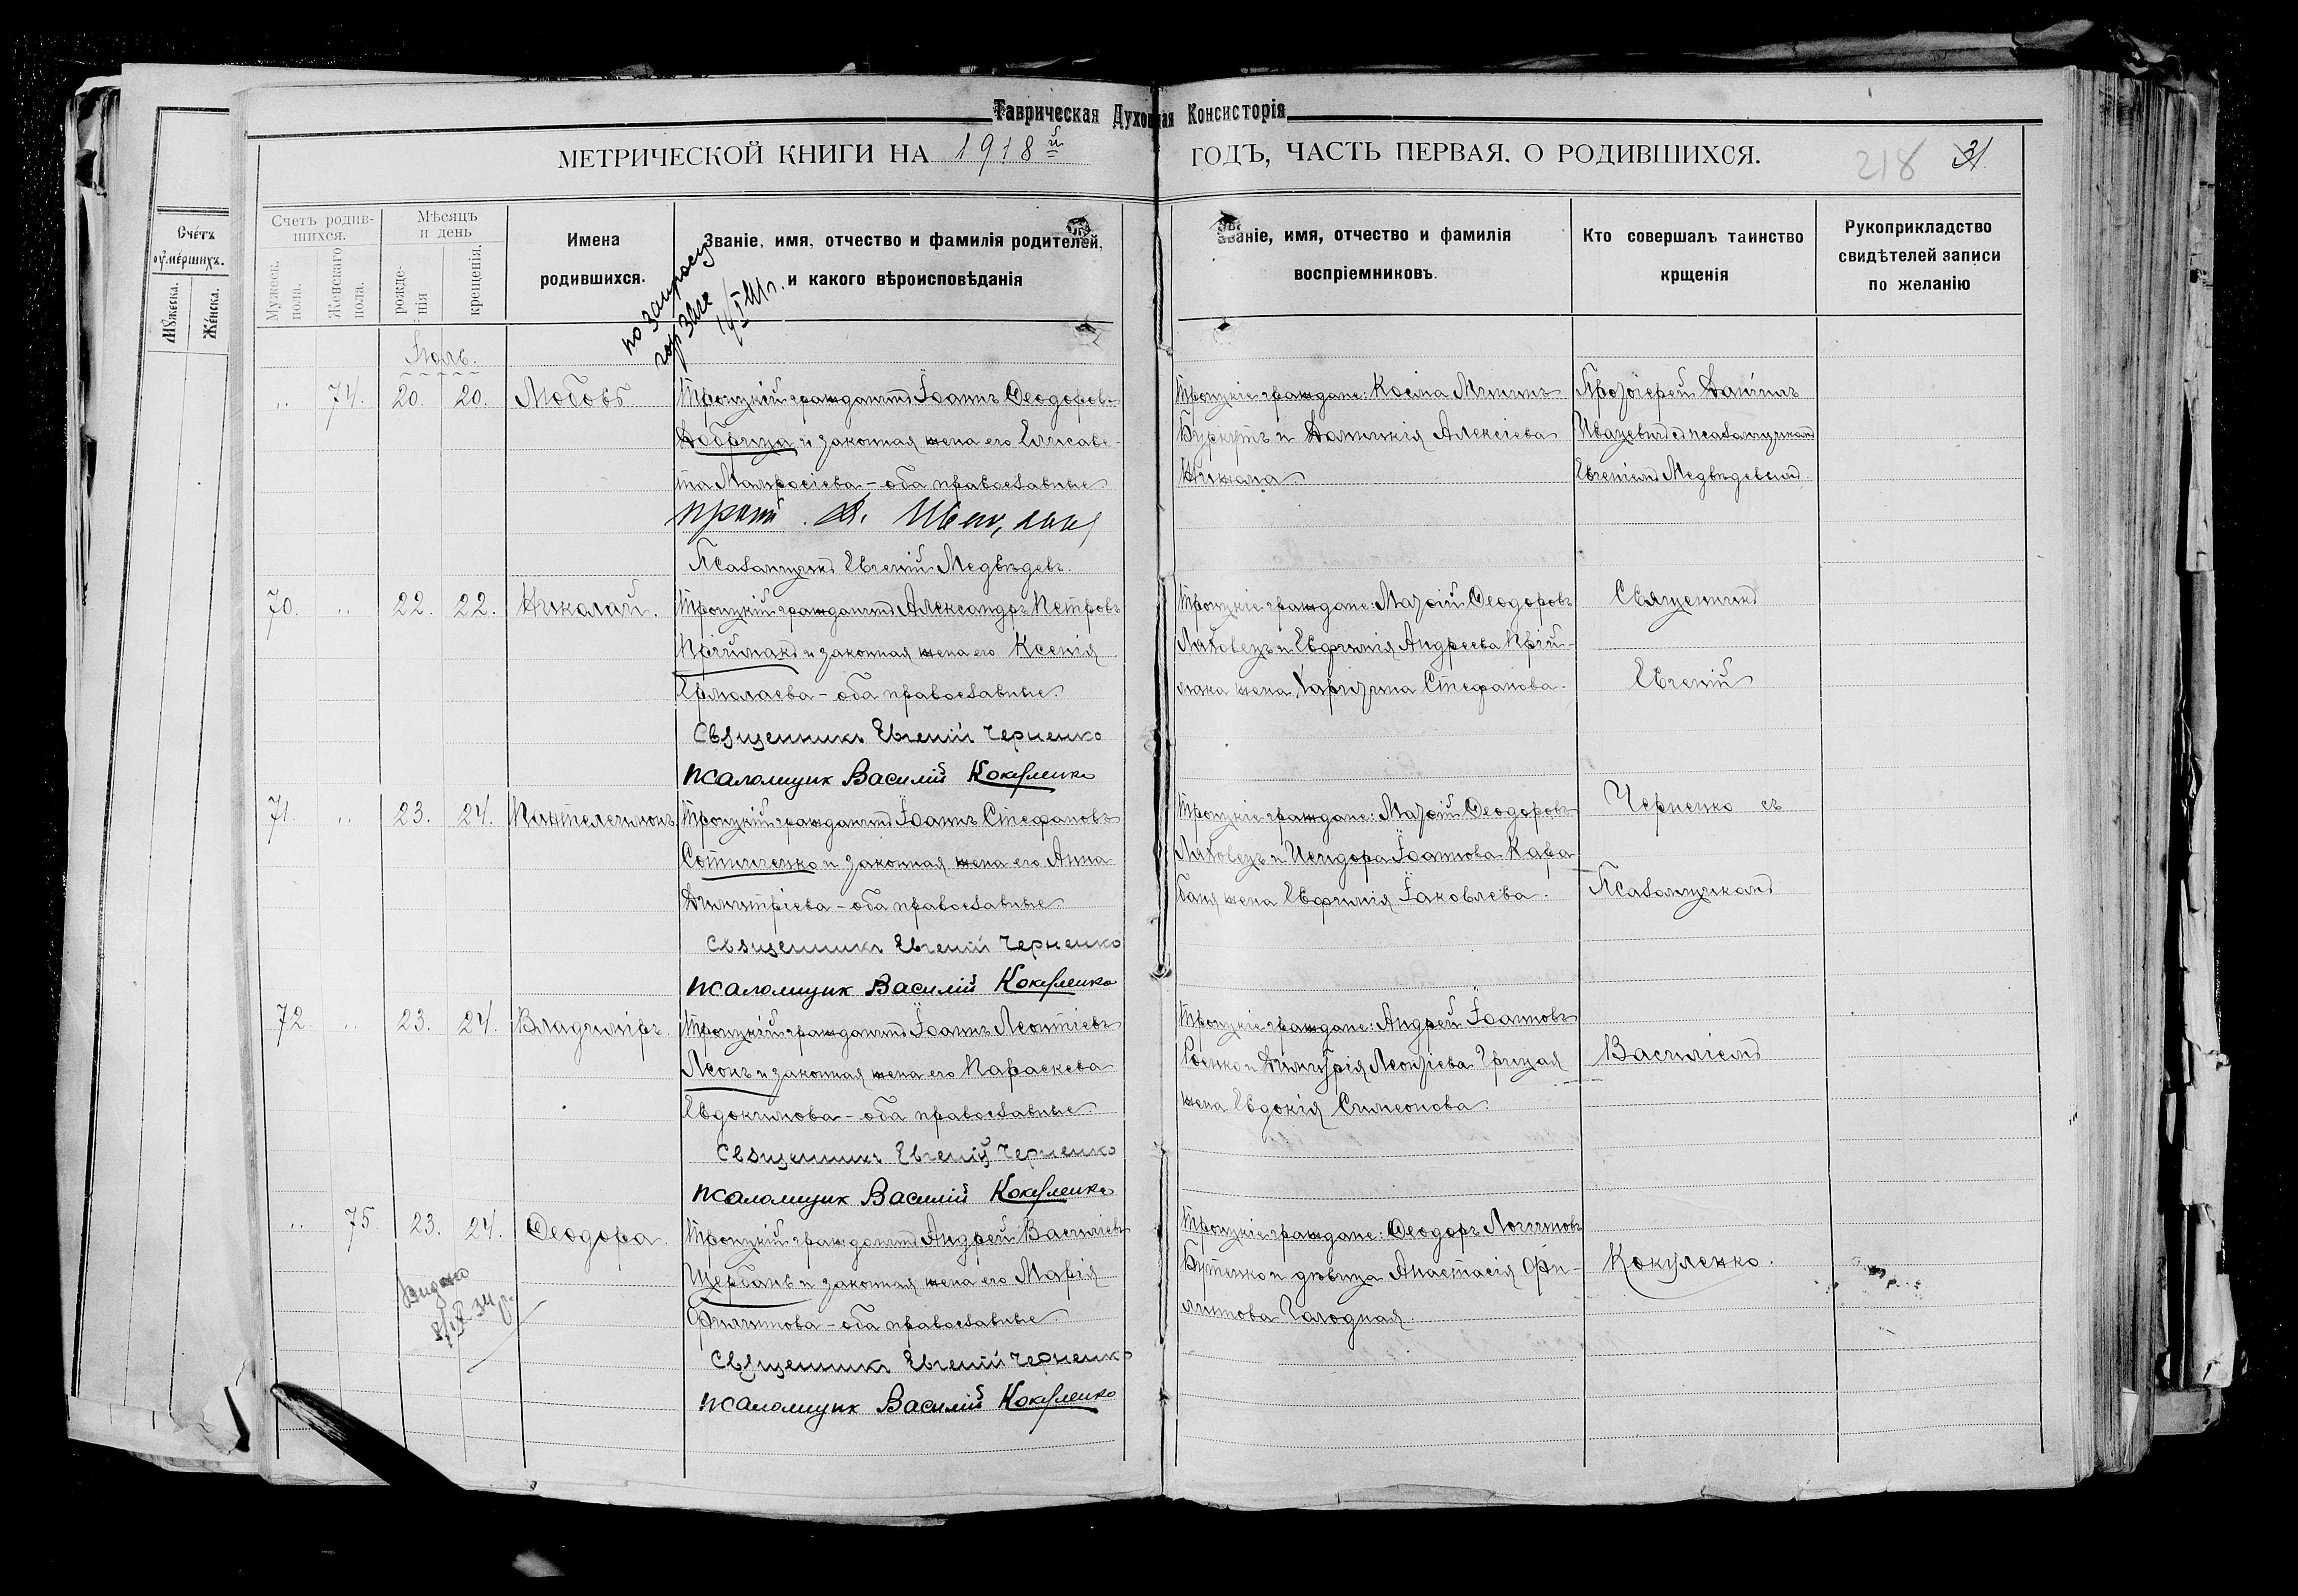 Таврическая Духовная Консисторія
МЕТРИЧЕСКОЙ КНИГИ НА 1918й ГОДЪ, ЧАСТЬ ПЕРВАЯ, О РОДИВШИХСЯ.
218 31.
Счетъ умершихъ.
Мужеска.
Женска.
Счетъ родившихся.
Мужеск. пола.
Женскаго пола.
Мѣсяцъ и день
рожденія
крещенія.
Имена родившихся.
Званіе, имя, отчество и фамилія родителей, и какого вѣроисповѣданія
Званіе, имя, отчество и фамилія воспріемниковъ.
Кто совершалъ таинство крщенія
Рукоприкладство свидѣтелей записи по желанію
по запросу
гор загс
Іюль.
„ 74. 20. 20. Любовь
Троицкій гражданинъ Іоаннъ Ѳеодоровъ
Добрица и законная жена его Елисаве-
та Мамфосіева – оба православные
прот. Д. Ивац
Псаломщикъ Евгеній Медвѣдевъ.
Троицкіе граждане: Косма Мининъ
Буркутъ и Домникія Алексіева
Протоіерей Даніилъ
Ивацевичъ съ псаломщикомъ
Евгеніемъ Медвѣдевымъ.
70. „ 22. 22. Николай.
Троицкій гражданинъ Александръ Петровъ
Пріймакъ и законная жена его Ксенія
Ермолаева – оба православные.
Священникъ Евгеній Черненко
псаломщик Василій Кокуленко
Троицкіе граждане: Матѳій Ѳеодоровъ
Ляховецъ и Евфимія Андреева Прій-
мака жена Харитина Стефанова.
Священникъ
Евгеній
71. „ 23. 24. Пантелеимонъ
Троицкій гражданинъ Іоаннъ Стефановъ
Сотниченко и законная жена его Анна
Димитріева – оба православные.
Священникъ Евгеній Черненко
псаломщик Василій Кокуленко
Троицкіе граждане: Матѳій Ѳеодоровъ
Ляховецъ и Исидора Іоаннова Кара
баня жена Евфимія Іаковлева.
Черненко съ
Псаломщикомъ
72. „ 23. 24. Владиміръ
Троицкій гражданинъ Іоаннъ Леонтіевъ
Леонъ и законная жена его Параскева
Евдокимова – оба православные.
Священникъ Евгеній Черненко
псаломщик Василій Кокуленко
Троицкіе граждане: Андрей Іоанновъ
Роенко и Димитрія Леонтіева Грицая
жена Евдокія Симеонова.
Василіемъ
„ 75. 23. 24. Ѳеодора.
Троицкій гражданинъ Андрей Василіевъ
Щербань и законная жена его Марія
Филиппова – оба православные.
Священникъ Евгеній Черненко
псаломщик Василій Кокуленко
Троицкіе граждане: Ѳеодоръ Логиновъ
Бутенко и дѣвица Анастасія Фи-
липпова Чагодная
Кокуленко.
Видано